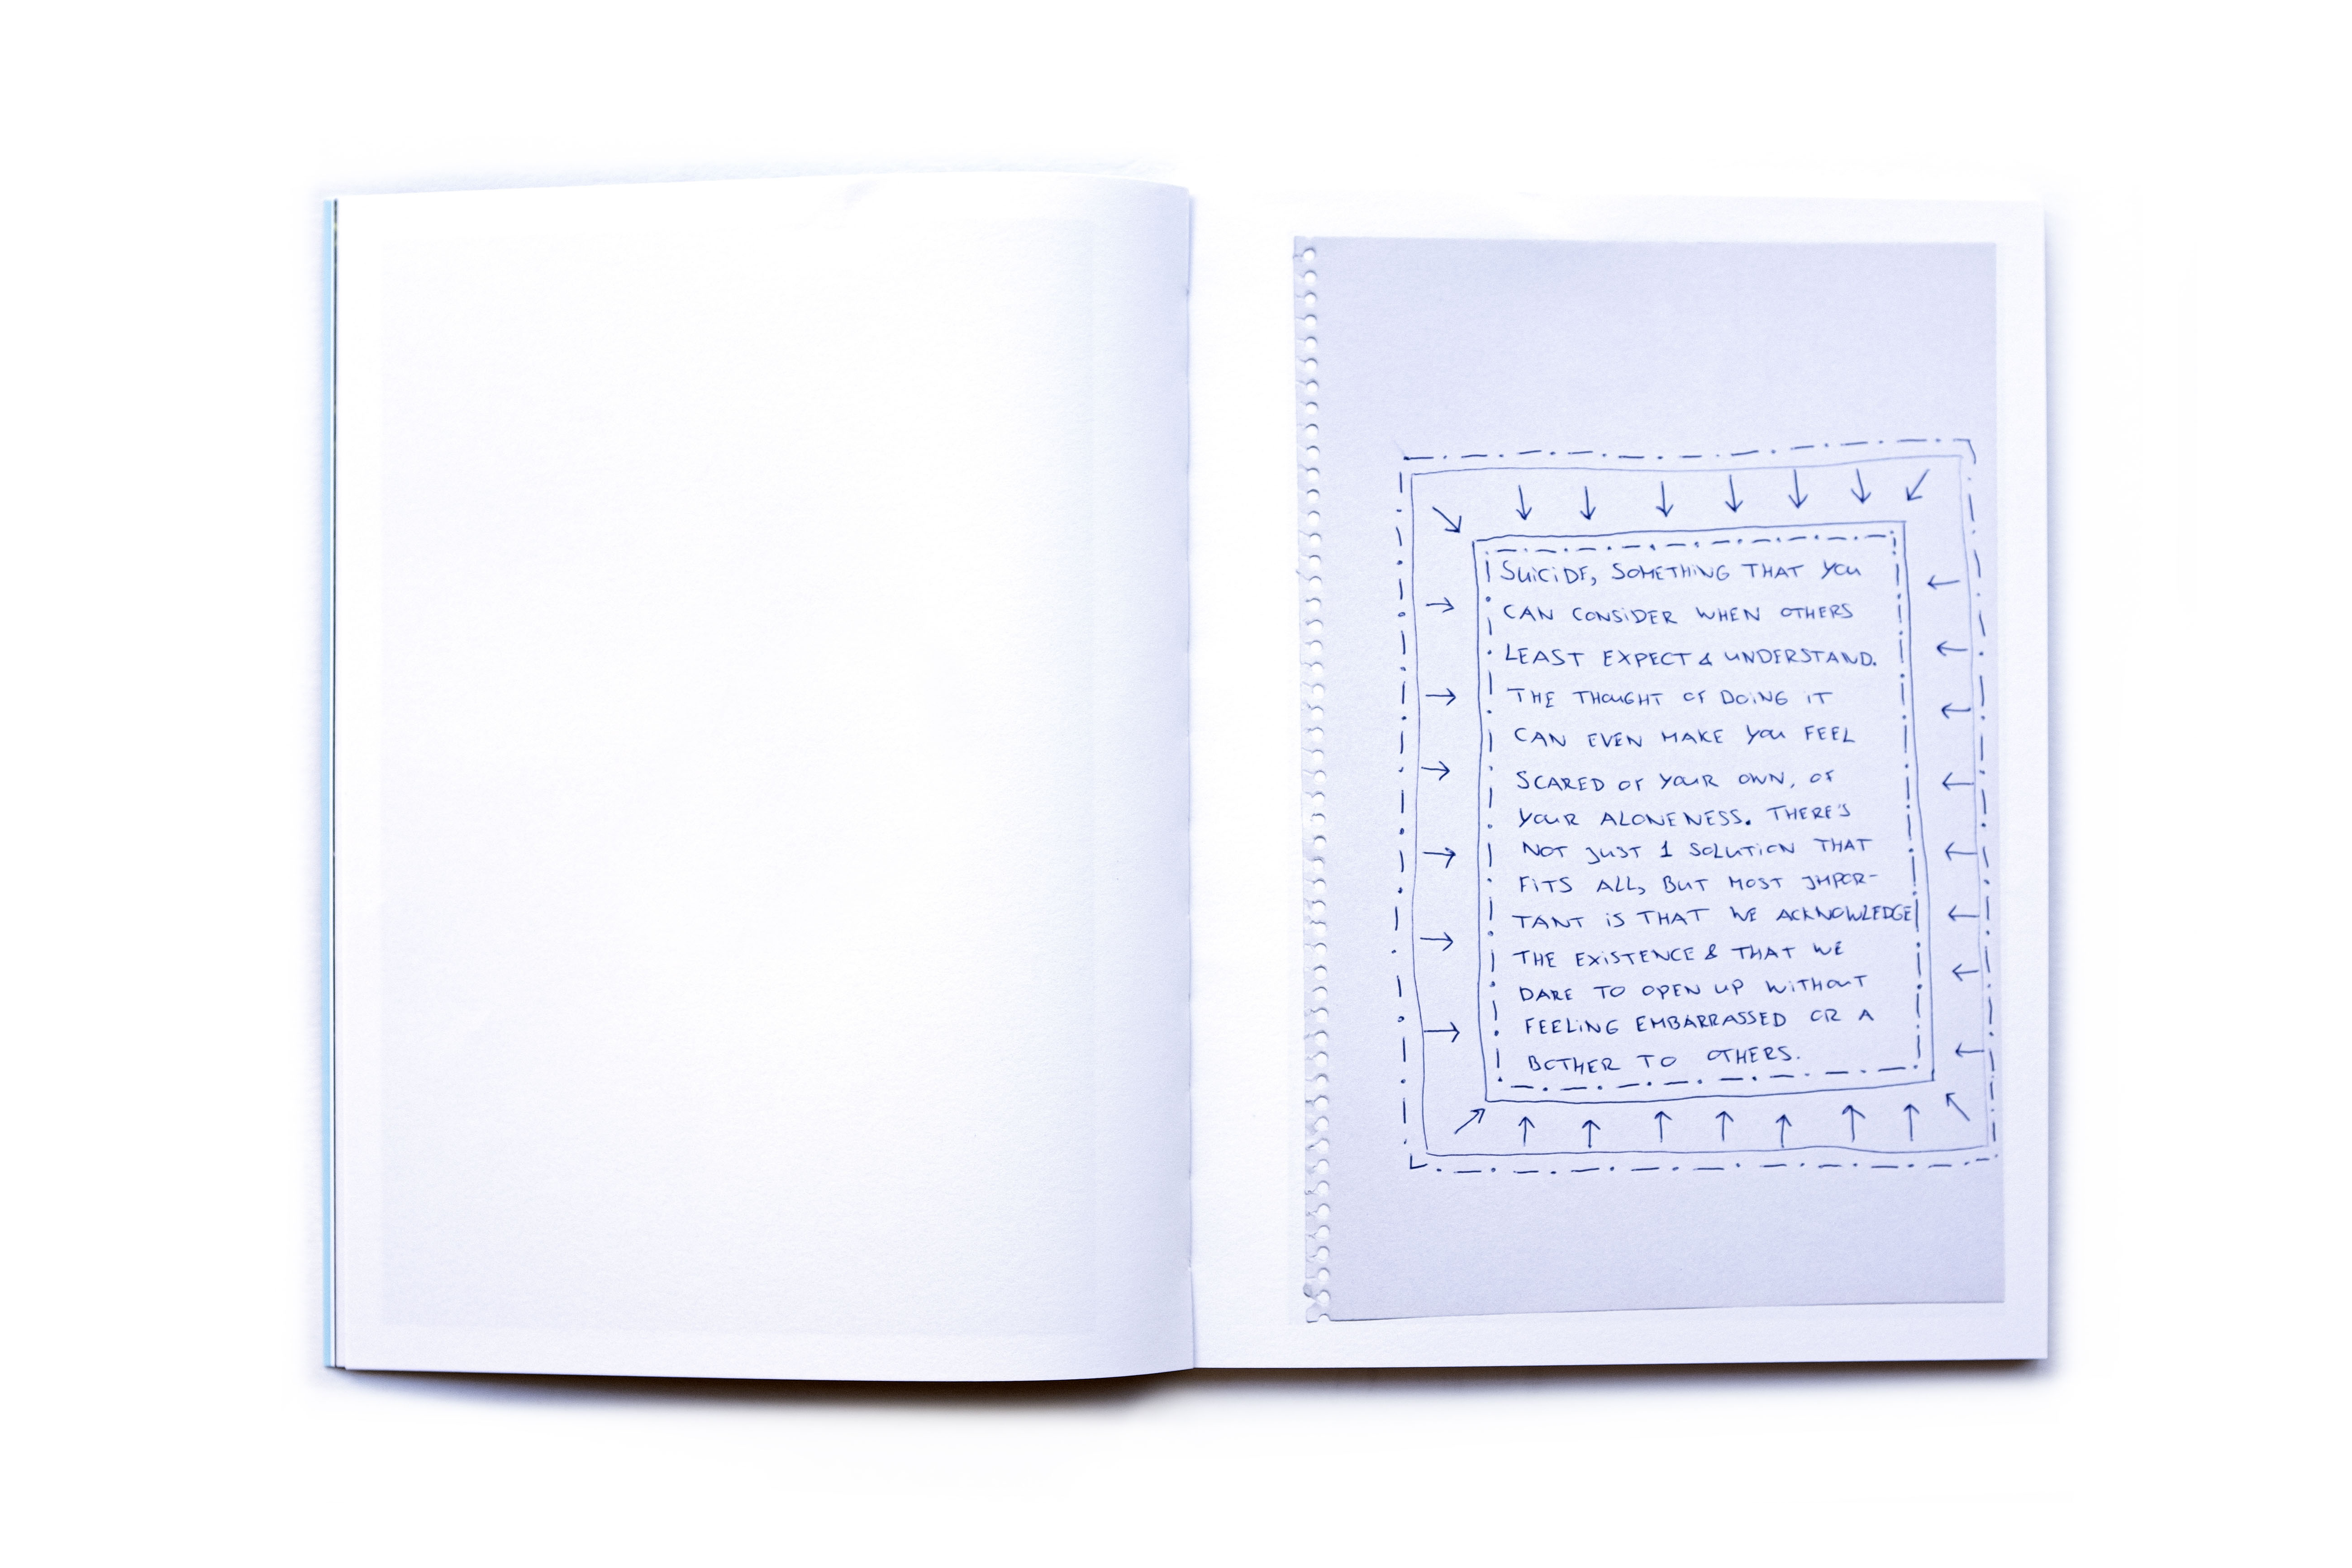 SUICIDE, SOMETHING THAT YOU
CAN CONSIDER WHEN OTHERS
LEAST EXPECT & UNDERSTAND.
THE THOUGHT OF DOING IT
CAN EVEN MAKE YOU FEEL
SCARED OF YOUR OWN, OF
YOUR ALONENESS. THERE'S
NOT JUST 1 SOLUTION THAT
FITS ALL, BUT MOST IMPOR-
TANT IS THAT WE ACKNOWLEDGE
THE EXISTENCE & THAT WE
DARE TO OPEN UP WITHOUT
FEELING EMBARRASSED OR A
BOTHER TO OTHERS.